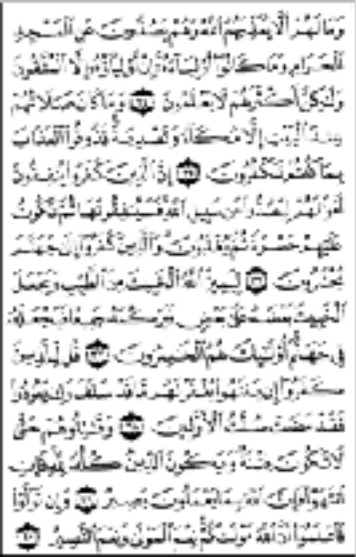 وَمَا لَهُمْ أَلَّا يُعَذِّبَهُمُ اللَّهُ وَهُمْ يَصُدُّونَ عَنِ الْمَسْجِدِ
الْحَرَامِ وَمَا كَانُوا أَوْلِيَاءَهُ إِنْ أَوْلِيَاؤُهُ إِلَّا الْمُتَّقُونَ
وَلَٰكِنَّ أَكْثَرَهُمْ لَا يَعْلَمُونَ ٣٤ وَمَا كَانَ صَلَاتُهُمْ
عِندَ الْبَيْتِ إِلَّا مُكَاءً وَتَصْدِيَةً فَذُوقُوا الْعَذَابَ
بِمَا كُنتُمْ تَكْفُرُونَ ٣٥ إِنَّ الَّذِينَ كَفَرُوا يُنفِقُونَ
أَمْوَالَهُمْ لِيَصُدُّوا عَن سَبِيلِ اللَّهِ فَسَيُنفِقُونَهَا ثُمَّ تَكُونُ
عَلَيْهِمْ حَسْرَةً ثُمَّ يُغْلَبُونَ وَالَّذِينَ كَفَرُوا إِلَىٰ جَهَنَّمَ
يُحْشَرُونَ ٣٦ لِيَمِيزَ اللَّهُ الْخَبِيثَ مِنَ الطَّيِّبِ وَيَجْعَلَ
الْخَبِيثَ بَعْضَهُ عَلَىٰ بَعْضٍ فَيَرْكُمَهُ جَمِيعًا فَيَجْعَلَهُ
فِي جَهَنَّمَ أُولَٰئِكَ هُمُ الْخَاسِرُونَ ٣٧ قُل لِّلَّذِينَ
كَفَرُوا إِن يَنتَهُوا يُغْفَرْ لَهُم مَّا قَدْ سَلَفَ وَإِن يَعُودُوا
فَقَدْ مَضَتْ سُنَّتُ الْأَوَّلِينَ ٣٨ وَقَاتِلُوهُمْ حَتَّىٰ
لَا تَكُونَ فِتْنَةٌ وَيَكُونَ الدِّينُ كُلُّهُ لِلَّهِ فَإِنِ
انتَهَوْا فَإِنَّ اللَّهَ بِمَا يَعْمَلُونَ بَصِيرٌ ٣٩ وَإِن تَوَلَّوْا
فَاعْلَمُوا أَنَّ اللَّهَ مَوْلَاكُمْ نِعْمَ الْمَوْلَىٰ وَنِعْمَ النَّصِيرُ ٤٠